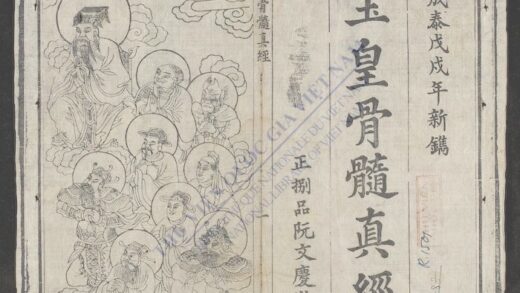 成泰戊戌年新鐫
玉皇骨髓真經
正捌品阮文慶
骨髓真經
一
THƯ VIỆN QUỐC GIA VIỆT NAM
BIBLIOTHÈQUE NATIONALE DU VIETNAM
NATIONAL LIBRARY OF VIETNAM